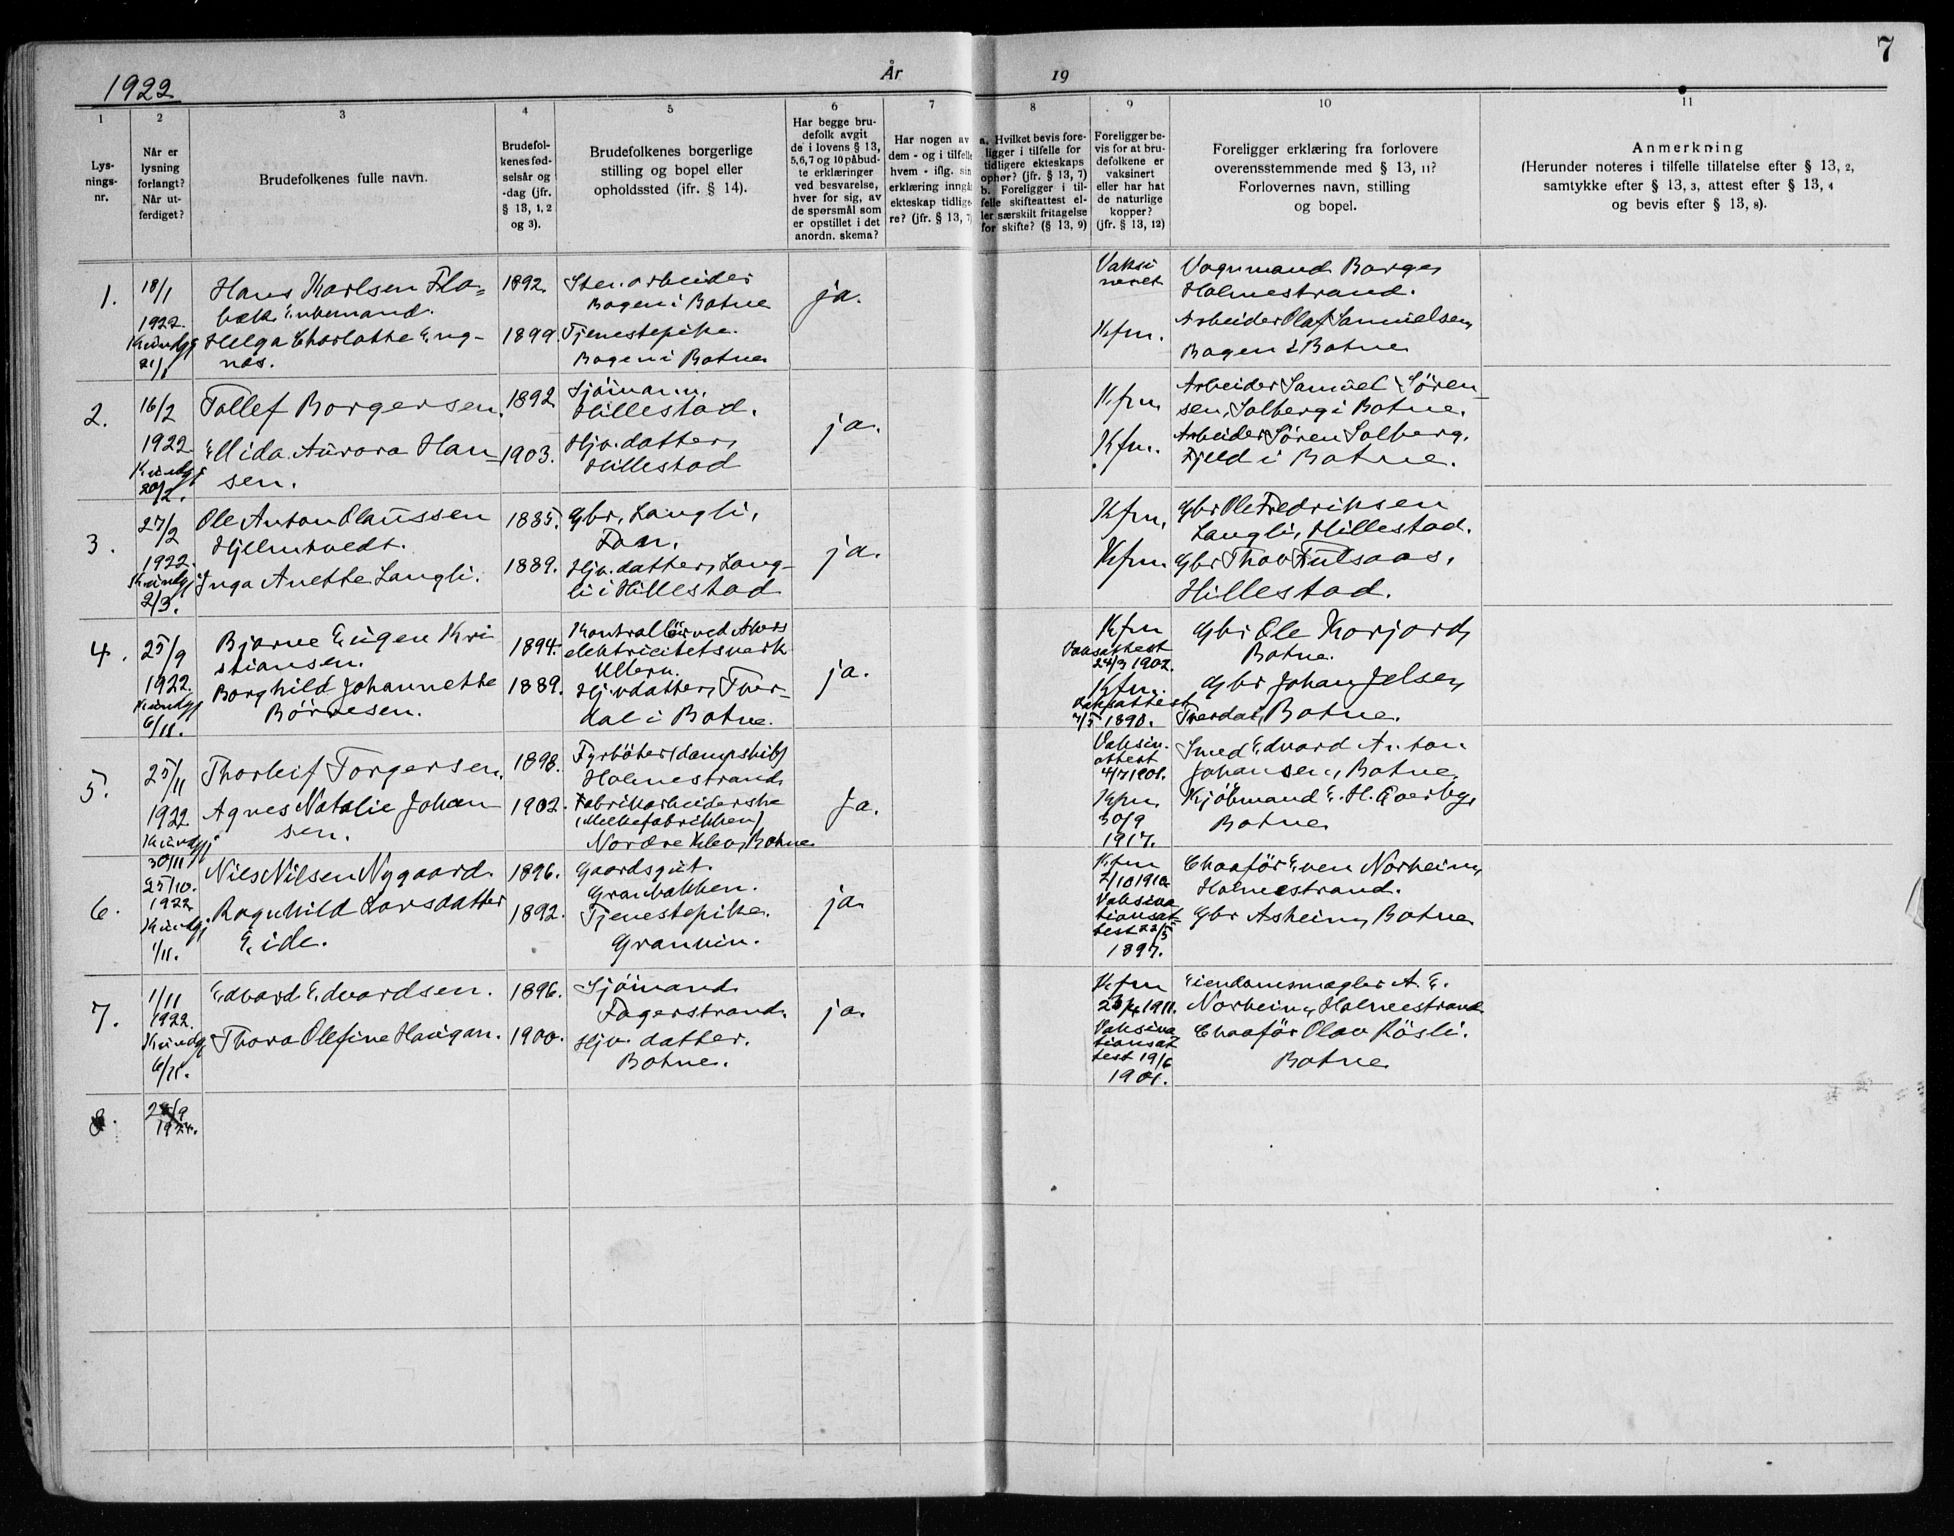 7
1922
År
19
1
2
3
4
5
6
7
8
9
10
11
Lys-
nings-
nr.
Når er
lysning
forlangt?
Når ut-
ferdiget?
Brudefolkenes fulle navn.
Brudefol-
kenes fød-
selsår og
-dag (jfr.
§ 13, 1, 2
og 3).
Brudefolkenes borgerlige
stilling og bopel eller
opholdssted (jfr. § 14).
Har begge bru-
defolk avgit
de i lovens § 13,
5,6,7 og 10 påbud-
te erklæringer
ved besvarelse,
hver for sig, av
de spørsmål som
er opstillet i det
anordn. skema?
Har nogen av
dem - og i tilfelle
hvem - iflg. sin
erklæring inngåt
ekteskap tidlige-
re? (jfr. § 13, 7)
a. Hvilket bevis fore-
ligger i tilfelle for
tidligere ekteskaps
ophør? (jfr. § 13, 7)
b. Foreligger i til-
felle skifteattest el-
ler særskilt fritagelse
for skifte? (§ 13, 9)
Foreligger be-
vis for at bru-
defolkene er
vaksinert
eller har hat
de naturlige
kopper?
(jfr. § 13, 12)
Foreligger erklæring fra forlovere
overensstemmende med § 13, 11?
Forlovernes navn, stilling
og bopel.
Anmerkning
(Herunder noteres i tilfelle tillatelse efter § 13, 2,
samtykke efter § 13, 3, attest efter § 13, 4
og bevis efter § 13, 8).
1.
18/1
1922.
Kundgj
21/1
Hans Karlsen Fla=
bæk. Enkemand.
Helga Charlotte Eng-
nes.
1892.
1899.
Stenarbeider
Bogen i Botne
Tjenestepike.
Bogen i Botne
ja.
Vaksi
neret
Kfm.
Vognmand Borge,
Holmestrand.
Arbeider Olaf Samuelsen,
Bogen i Botne
2.
16/2
1922
Kundgj
20/2.
Tollef Borgersen.
Ellida Aurora Han-
sen.
1892
1903.
Sjömann,
Hillestad.
Hjv. datter,
Hillestad
ja.
Kfm.
Kfm.
Arbeider Samuel Sören-
sen, Solberg i Botne.
Arbeider Sören Solberg,
Fjeld i Botne.
3.
27/2
1922.
Kundgj
2/3.
Ole Anton Olaussen
Hjelmtvedt.
Inga Anette Langli.
1885.
1889.
Gbr, Langli,
Hjv. datter, Lang-
li i Hillestad
ja.
Kfm.
Kfm.
Gbr Ole Fredriksen
Langli, Hillestad.
Gbr Thov Fulsaas,
Hillestad.
4.
25/9
1922.
Kundgj
6/11.
Bjarne Eugen Kri
stiansen.
Borghild Johannette
Börresen.
1894.
1889.
Kontrollör ved Akers
elektricitetsverk
Ullern.
Hjvdatter, Tver-
dal i Botne.
ja.
Kfm
Vaksattest
24/3 1902.
Kfm.
Vaksattest
7/5 1890.
Gbr Ole Korjord,
Botne.
Gbr Johan Jelsen,
Tverdal, Botne.
5.
25/11
1922
Kundgj
30/11
Thorleif Torgersen.
Agnes Natalie Johan
sen.
1898.
1902.
Fyrböter (dampskib)
Holmestrand
Fabrikarbeiderske
(Melkefabrikken)
Nordre Klev, Botne
Ja.
Vaksin.
attest
4/7 1901.
Kfm.
30/9
1917.
Smed Edvard Anton
Johansen, Botne.
Kjöbmand E. H. Gverby,
Botne
6.
25/10.
1922
Kundgj
1/11.
Nils Nilsen Nygaard.
Ragnhild Larsdatter
Eide.
1896.
1892.
Gaardsgut.
Granbakken.
Tjenestepike.
Granvin.
ja
Kfm
2/10 1910
Vaksina
tionsat-
test 22/5
1897.
Chaafför Even Norheim,
Holmestrand.
Gbr Asheim, Botne
7.
1/11
1922.
Kundgj
6/11.
Edvard Edvardsen.
Thora Olefine Haugan.
1896.
1900.
Sjömand.
Fagerstrand.
Hjv. datter.
Botne.
ja.
Kfm
1911.
Vaksina
tionsat
test 19/6
1901.
Eiendomsmægler A. E.
Norheim, Holmestrand
Chaafför Olav Rösli.
Botne
8.
1924.